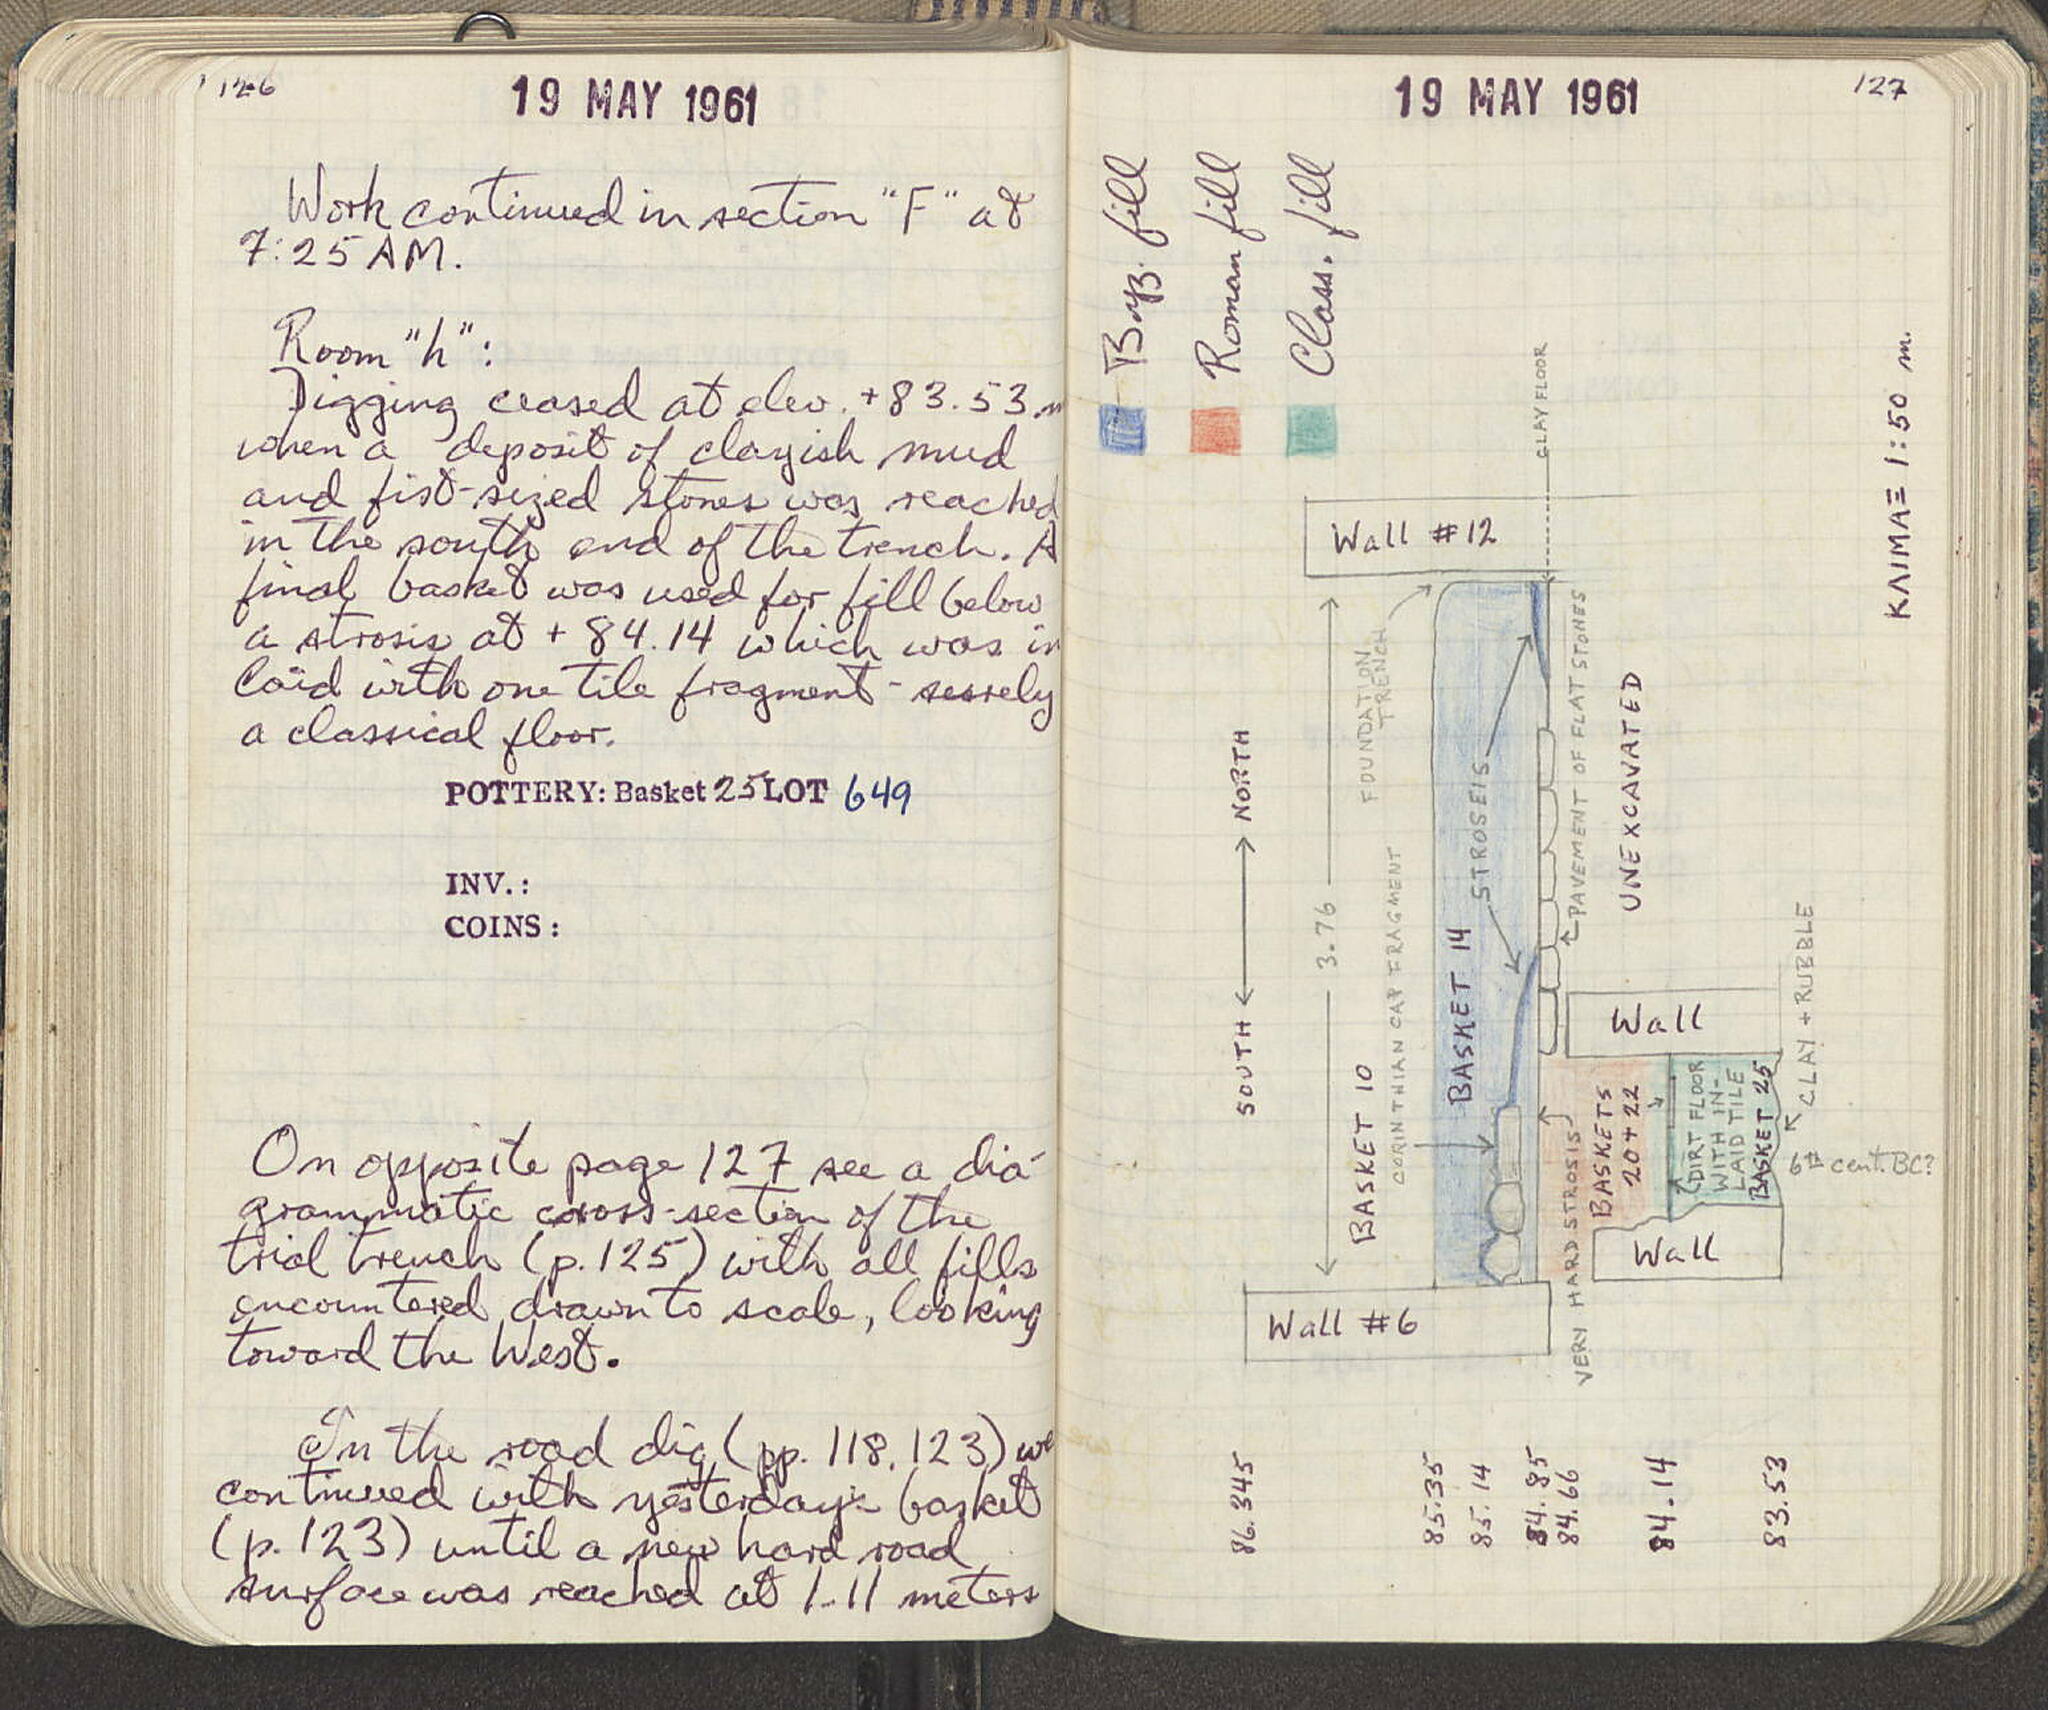 126
19 MAY 1961
Work continued in section "F" at
7:25 AM.
Room "h":
Digging ceased at elev. +83.53 m
when a deposit of clayish mud
and fist-sized stones was reached
in the south end of the trench. A
final basket was used for fill below
a strosis at +84.14 which was in
laid with one tile fragment - surely
a classical floor.
POTTERY: Basket 25 LOT 649
INV.:
COINS:
On opposite page 127 see a dia-
grammatic cross-section of the
trial trench (p. 125) with all fills
encountered drawn to scale, looking
toward the West.
In the road dig (pp. 118, 123) we
continued with yesterday's basket
(p. 123) until a new hard road
surface was reached at 1.11 meters
19 MAY 1961
127
Byz. fill
Roman fill
Class. fill
CLAY FLOOR
ΚΛΙΜΑΞ 1:50 m.
Wall #12
SOUTH
NORTH
3.76
FOUNDATION
TRENCH
STROSEIS
PAVEMENT OF FLAT STONES
UNEXCAVATED
BASKET 10
CORINTHIAN CAP FRAGMENT
BASKET 14
Wall
CLAY + RUBBLE
VERY HARD STROSIS
BASKETS
20 + 22
DIRT FLOOR
WITH IN-
LAID TILE
BASKET 25
6th cent. BC?
Wall
Wall #6
86.345
85.35
85.14
84.85
84.66
84.14
83.53